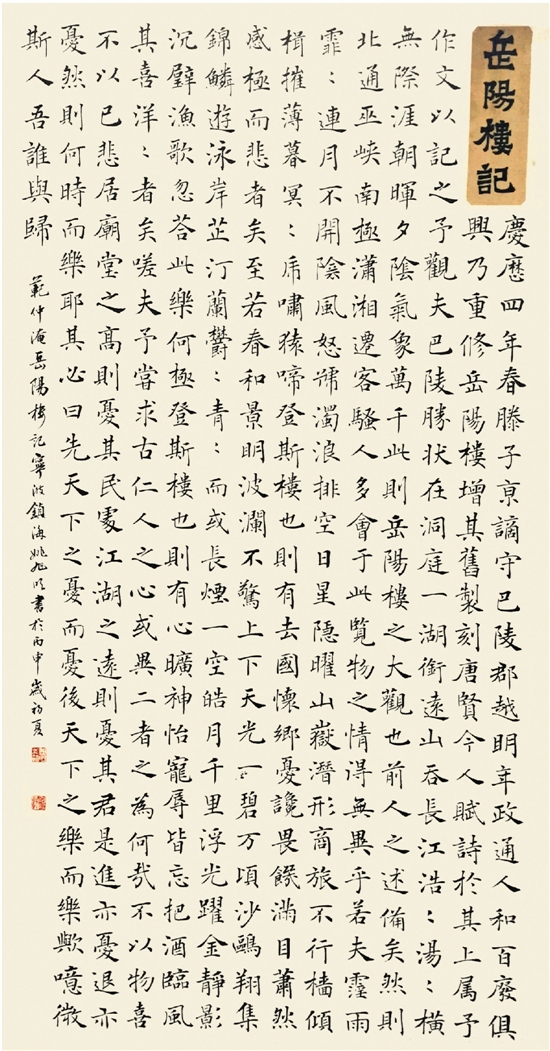 岳陽樓記
慶歷四年春滕子京謫守巴陵郡越明年政通人和百廢俱
興乃重修岳陽樓增其舊製刻唐賢今人賦詩於其上属予
作文以記之予觀夫巴陵勝状在洞庭一湖銜遠山吞長江浩〻湯〻橫
無際涯朝暉夕陰氣象萬千此則岳陽樓之大觀也前人之述備矣然則
北通巫峽南極瀟湘遷客騷人多會于此覽物之情得無異乎若夫霪雨
霏〻連月不開陰風怒號濁浪排空日星隱曜山嶽潛形商旅不行檣傾
楫摧薄暮冥〻虎嘯猿啼登斯樓也則有去國懷鄉憂讒畏饑滿目蕭然
感極而悲者矣至若春和景明波瀾不驚上下天光一碧万頃沙鷗翔集
錦鱗遊泳岸芷汀蘭鬱〻青〻而或長煙一空皓月千里浮光躍金靜影
沉璧漁歌忽荅此樂何極登斯樓也則有心曠神怡寵辱皆忘把酒臨風
其喜洋〻者矣嗟夫予嘗求古仁人之心或異二者之為何哉不以物喜
不以己悲居廟堂之高則憂其民處江湖之遠則憂其君是進亦憂退亦
憂然則何時而樂耶其必曰先天下之憂而憂後天下之樂而樂歟噫微
斯人吾誰與歸
範仲淹岳陽樓記寧波鎮海姚旭明書於丙申歲初夏